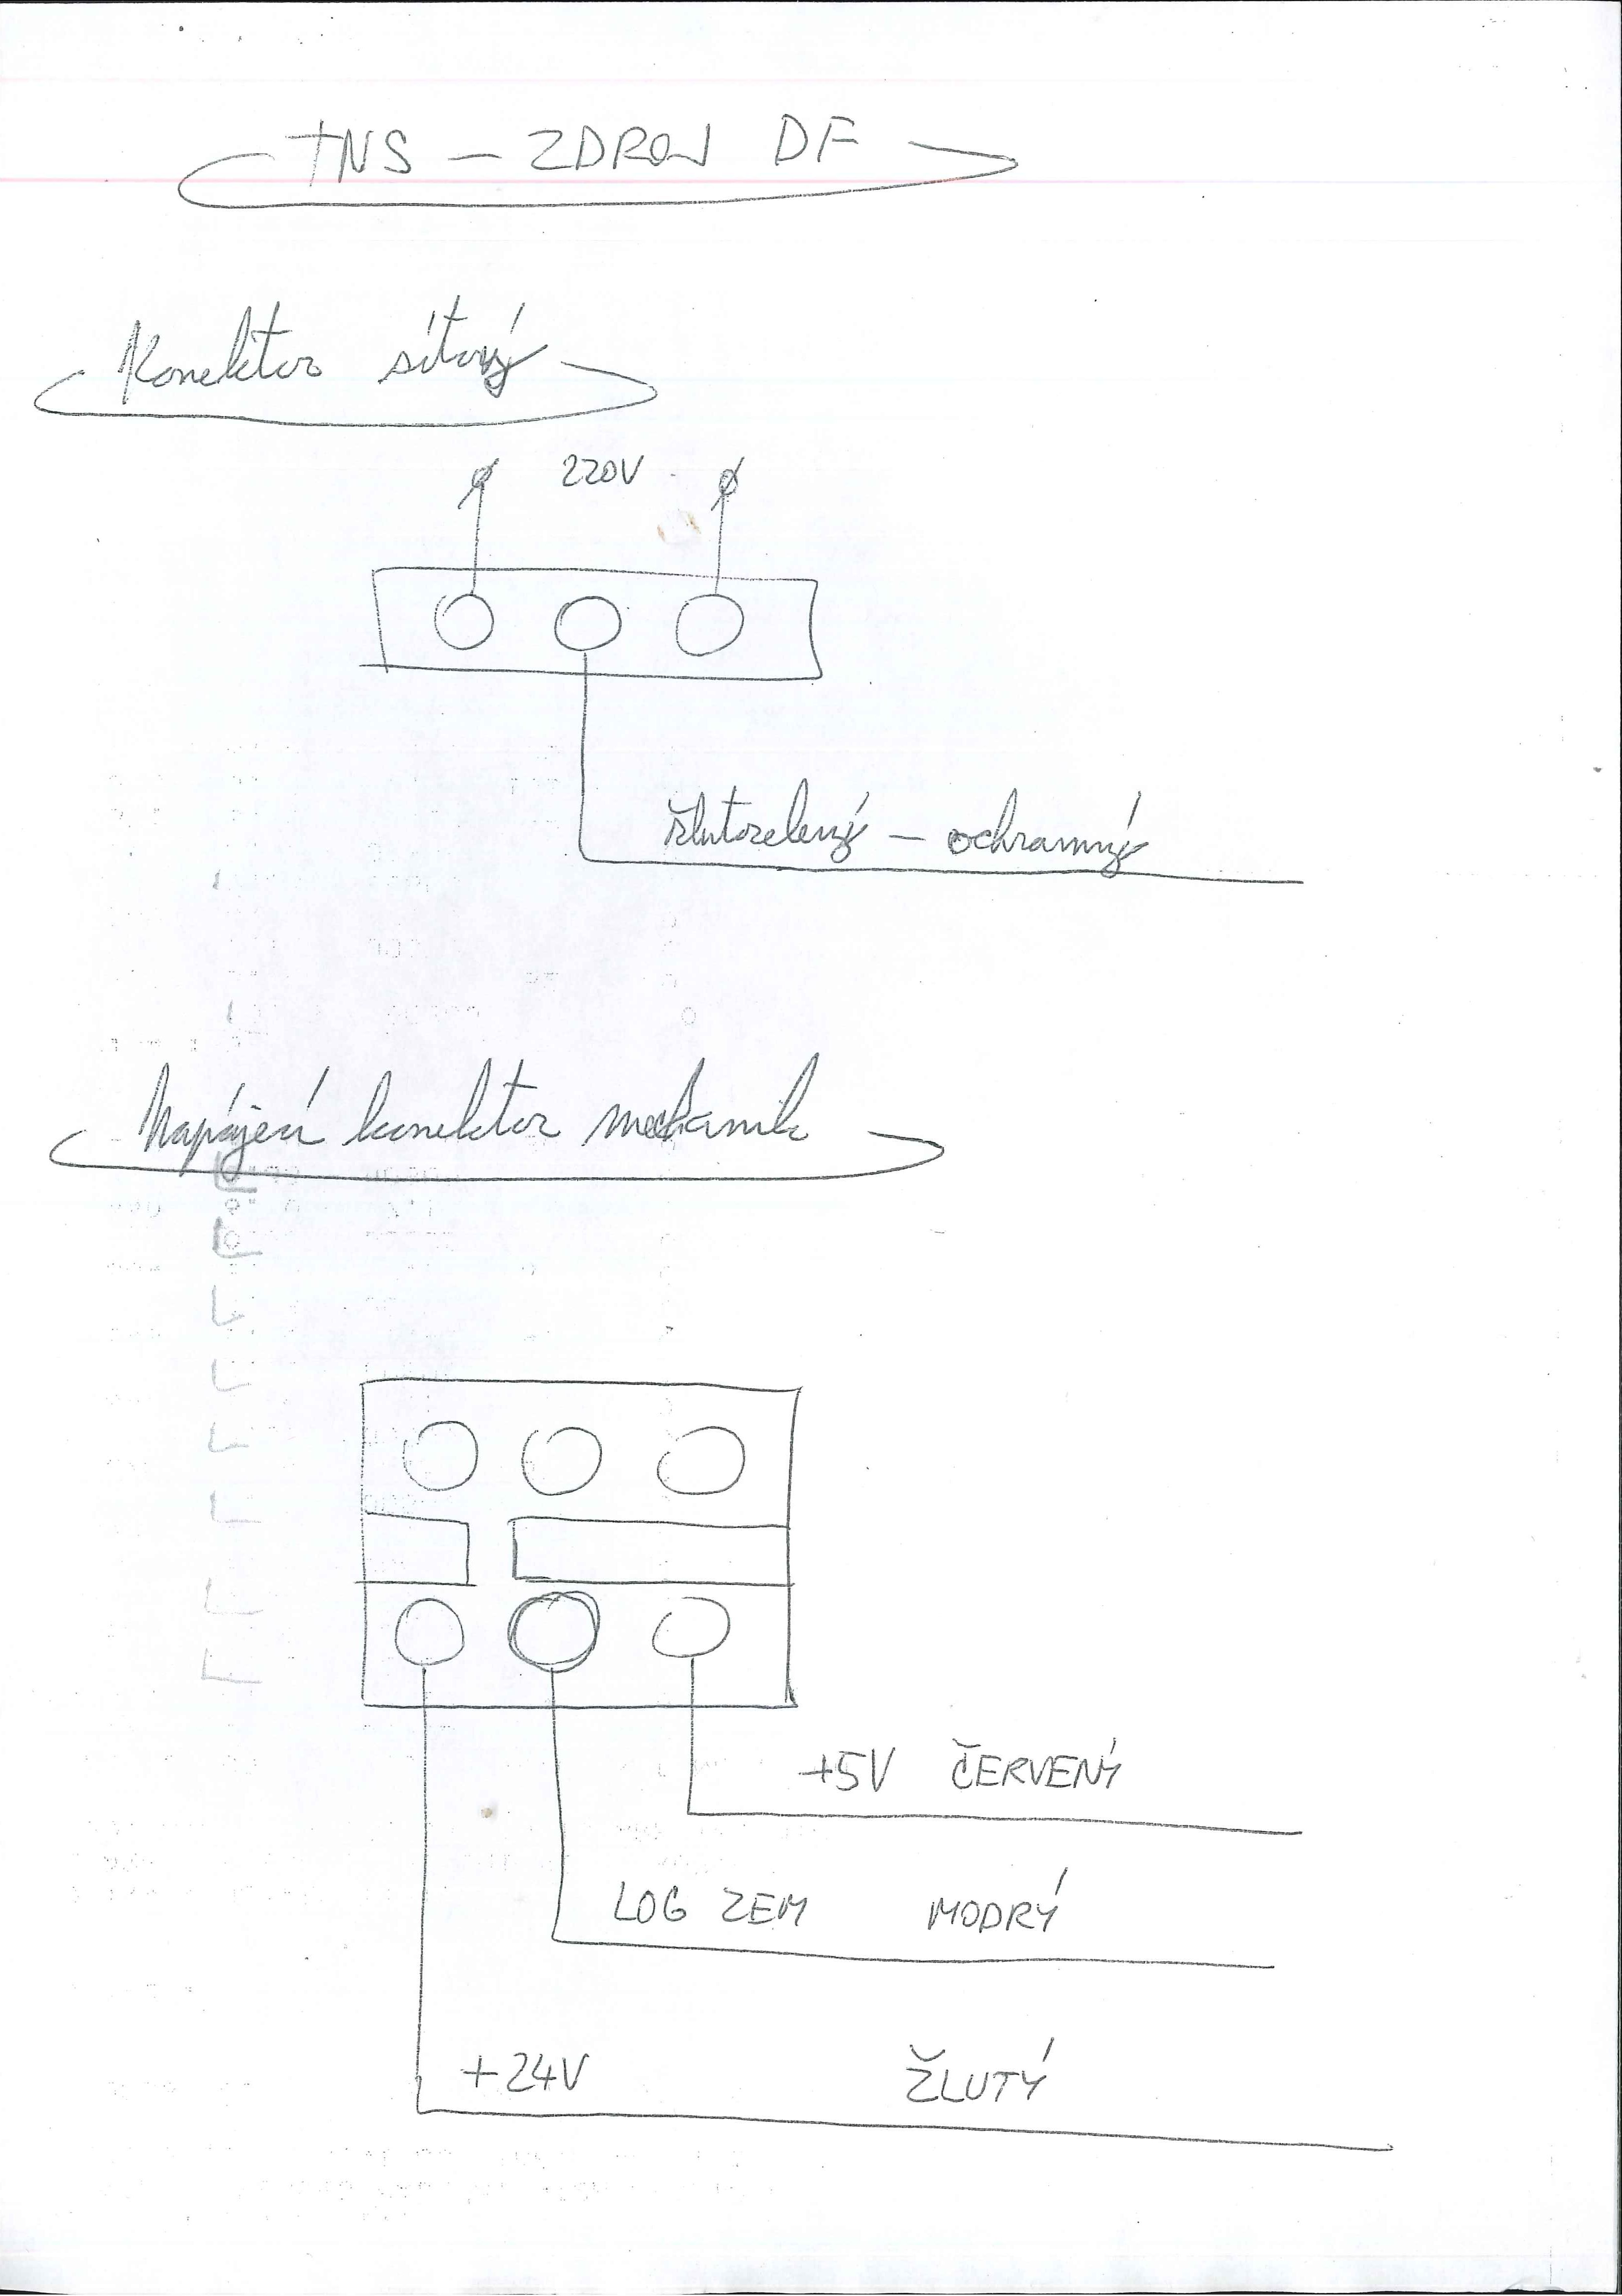 TNS - ZDROJ DF
Konektor síťový
220V
žlutozelený - ochranný
Napájecí konektor mechanik
+5V ČERVENÝ
LOG ZEM MODRÝ
+24V ŽLUTÝ